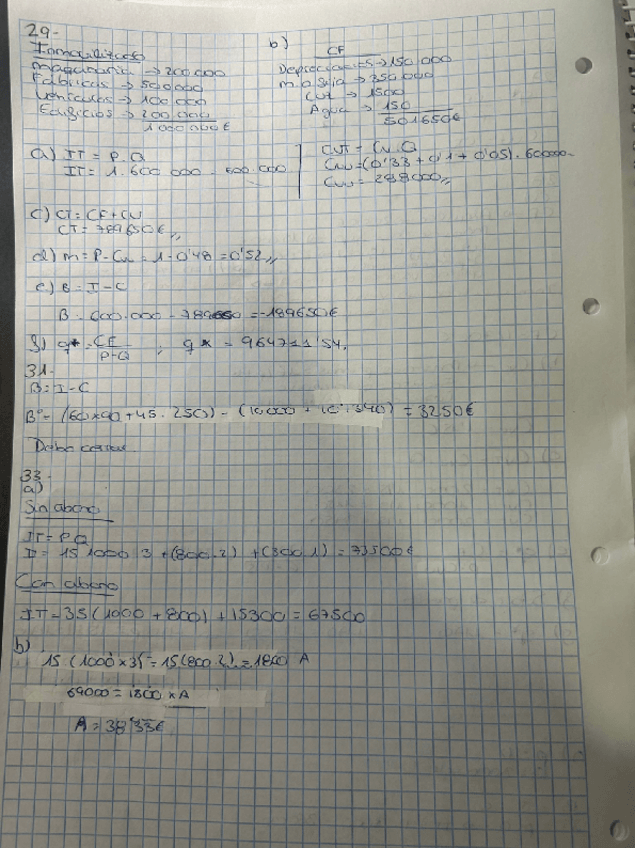 29-
Inmovilizado
maquinaria → 200.000
Fábricas → 500.000
Vehículos → 100.000
Edificios → 200.000
1000000€
b)
CF
Depreciaciones → 150.000
→ 350.000
→ 1500
Agua → 150
501650€
a) IT = P.Q
IT = 1.600.000 = 600.000
CVT = Cu.Q
Cvu = (0'33 + 0'1 + 0'05).60000
Cvu = 288000,,
c) CT = CF + CV
CT = 789650€,,
d) m = P - Cvu = 1 - 0'48 = 0'52,,
e) B = I - C
B = 600.000 - 789650 = -189650€
f) q* = CF / P-Q ; q* = 964711'54.
31-
B = I - C
Bº = (60x90 + 45.250) - (10.000 + 10.340) = 3250€
Debe cerrar
33-
a)
Sin abono
IT = PQ
IT = 15 1000 3 + (800.2) + (300.1) = 73500€
Con abono
IT = 35 (1000 + 800) + 15300 = 67500
b)
15 (1000 x 3) = 15 (800.2) = 1800 A
69000 = 1800 x A
A = 38'33€